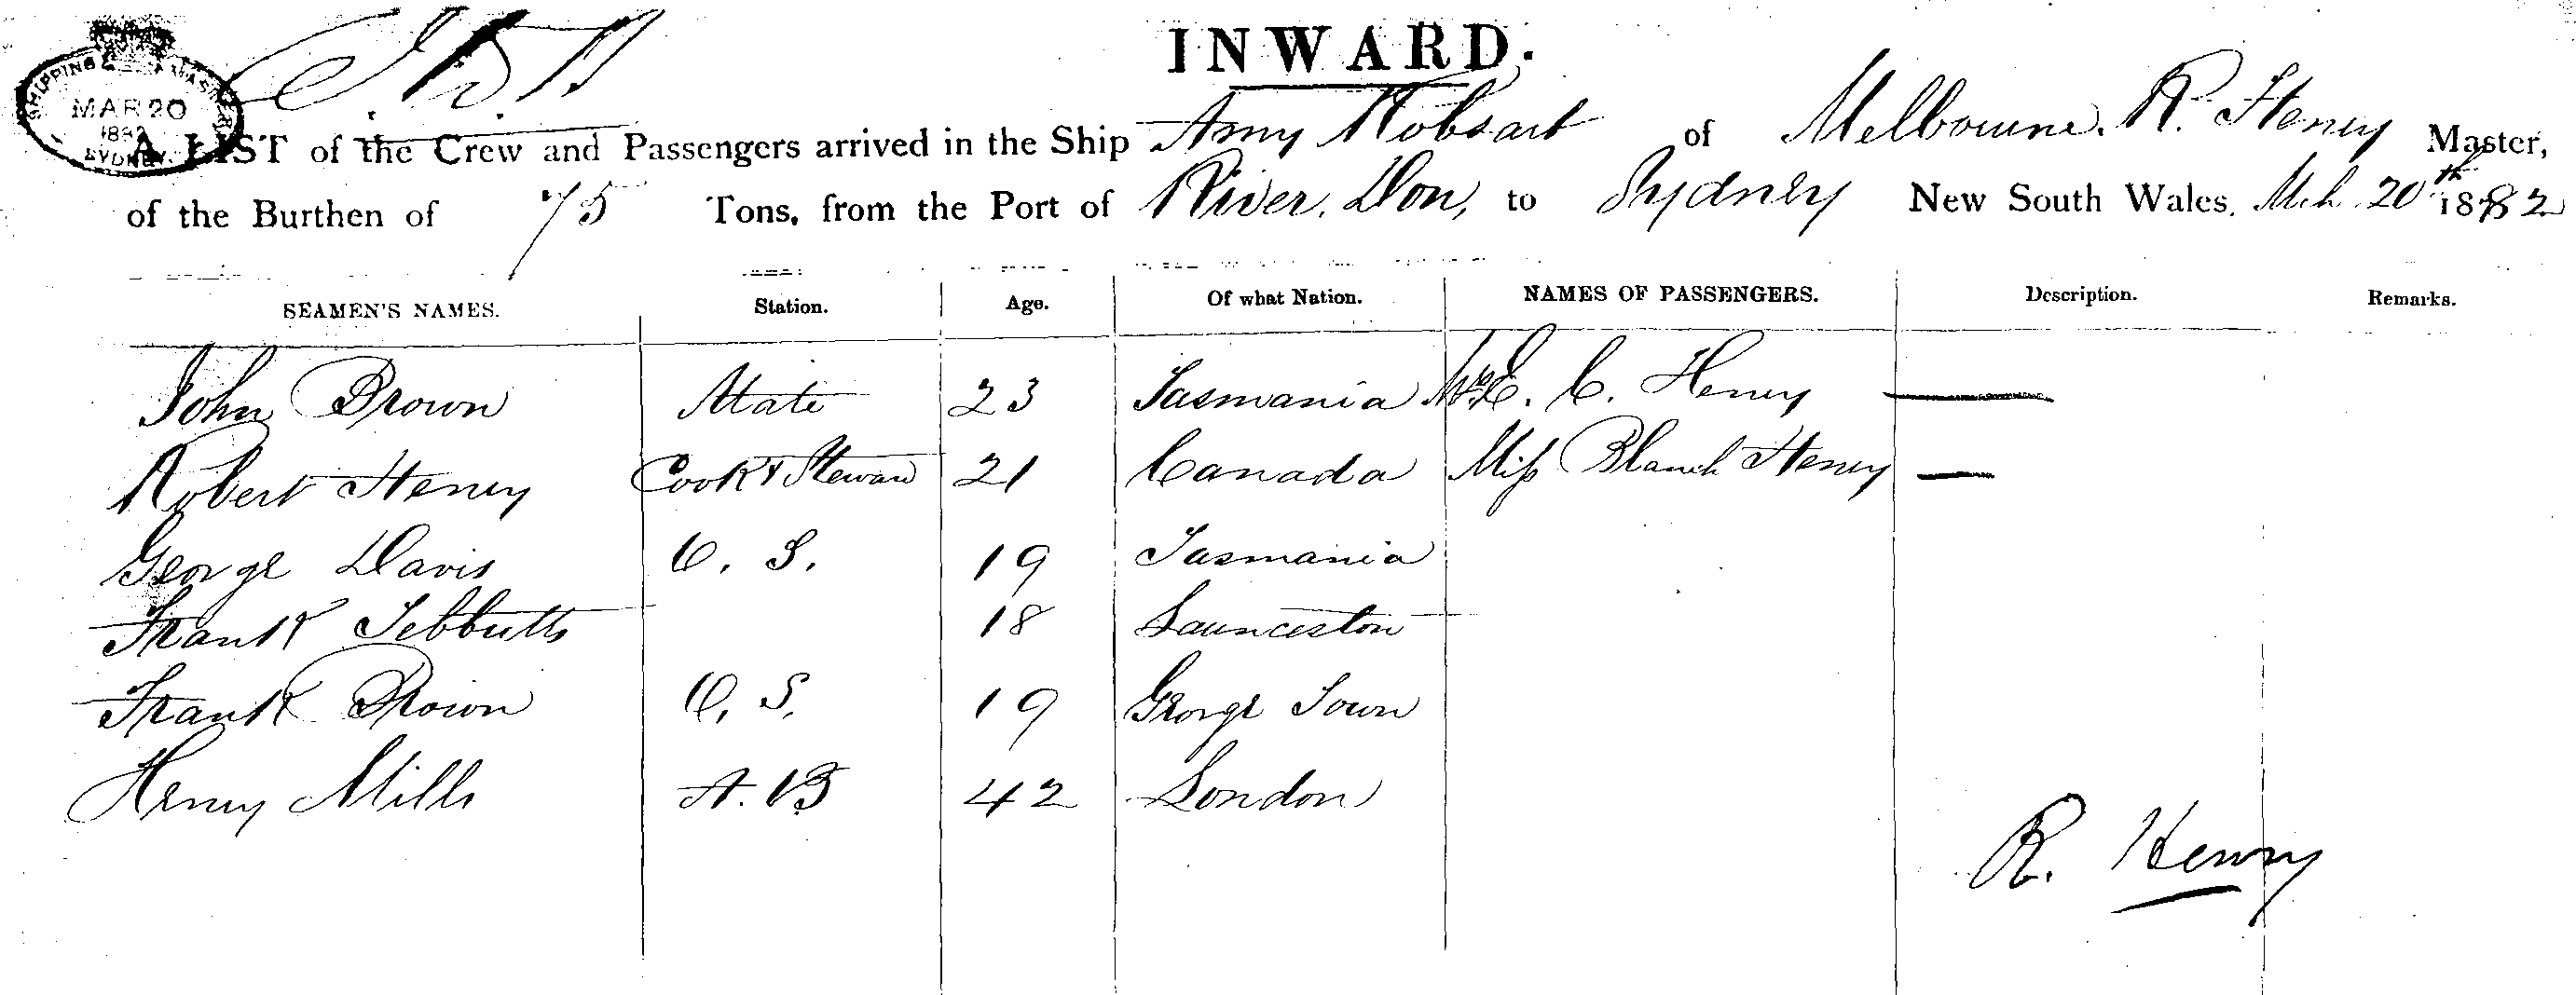 INWARD.
SHIPPING MASTER
MAR 20
1882
SYDNEY.
A LIST of the Crew and Passengers arrived in the Ship Amy Robsart of Melbourne. R. Henry Master,
of the Burthen of 75 Tons, from the Port of River Don, to Sydney New South Wales, Mch 20th 1882
SEAMEN'S NAMES. Station. Age. Of what Nation. NAMES OF PASSENGERS. Description. Remarks.
John Brown Mate 23 Tasmania Mrs E. C. Henry —
Robert Henry Cook & Steward 21 Canada Miss Blanch Henry —
George Davis O. S. 19 Tasmania
Frank Tebbutts 18 Launceston
Frank Brown O. S. 19 George Town
Henry Mills A. B 42 London
R. Henry